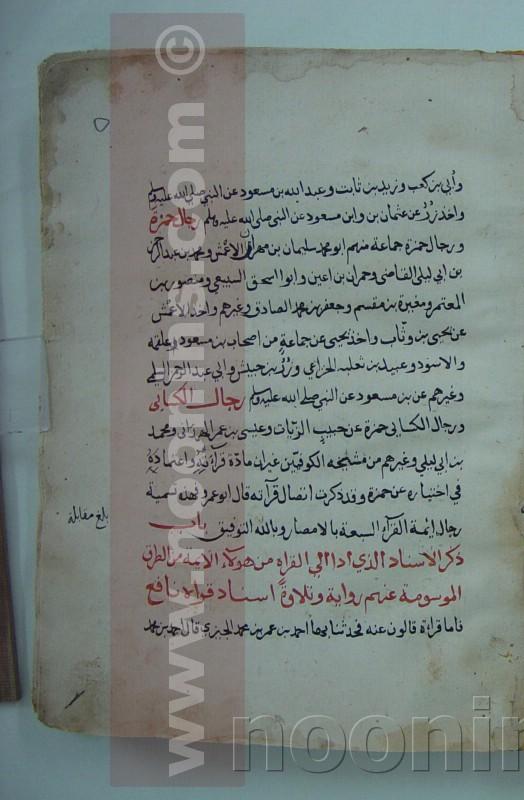 وأبي بن كعب وزيد بن ثابت وعبد الله بن مسعود عن النبي صلى الله عليه وسلم
واخذ زر عن عثمان بن وابن مسعود عن النبي صلى الله عليه وسلم رجال حمزة
ورجال حمزة جماعة منهم ابو محمد سليمان بن مهران الاعمش ومحمد بن عبد الرحمن
بن ابي ليلى القاضي وحمران بن اعين وابوا اسحق السبيعي ومنصور بن
المعتمر ومغيرة بن مقسم وجعفر بن محمد الصادق وغيرهم واخذ الاعمش
عن يحيى بن وثاب واخذ يحيى عن جماعة من اصحاب بن مسعود علقمه
والاسود وعبيد بن الخزاعي وزر بن حبيش وابي عبد الرحمن السلمي
وغيرهم عن بن مسعود عن النبي صلى الله عليه وسلم رجال الكسائي
ورجال الكسائي حمزة عن حبيب الزيات وعيسى بن عمر الهمداني ومحمد
بن ابي ليلى وغيرهم من مشيخه الكوفيين غير ان مادة قرآءته واعتماده
في اختياره عن حمزة وقد ذكرت اتصال قرآءته قال ابو عمرو فهذه تسمية
رجال ايمة القرآء السبعة بالامصار وبالله التوفيق باب
ذكر الاسناد الذي ادا الي القراه من هولاء الايمة من الطرق
الموسومة عنهم رواية وتلاوة اسناد قراه نافع
فاما قراءة قالون عنه فحدثنا بها احمد بن عمر بن محمد الجيزي قال احمد بن محمد
بلغ مقابلة
www.noormags.com ©
noormags